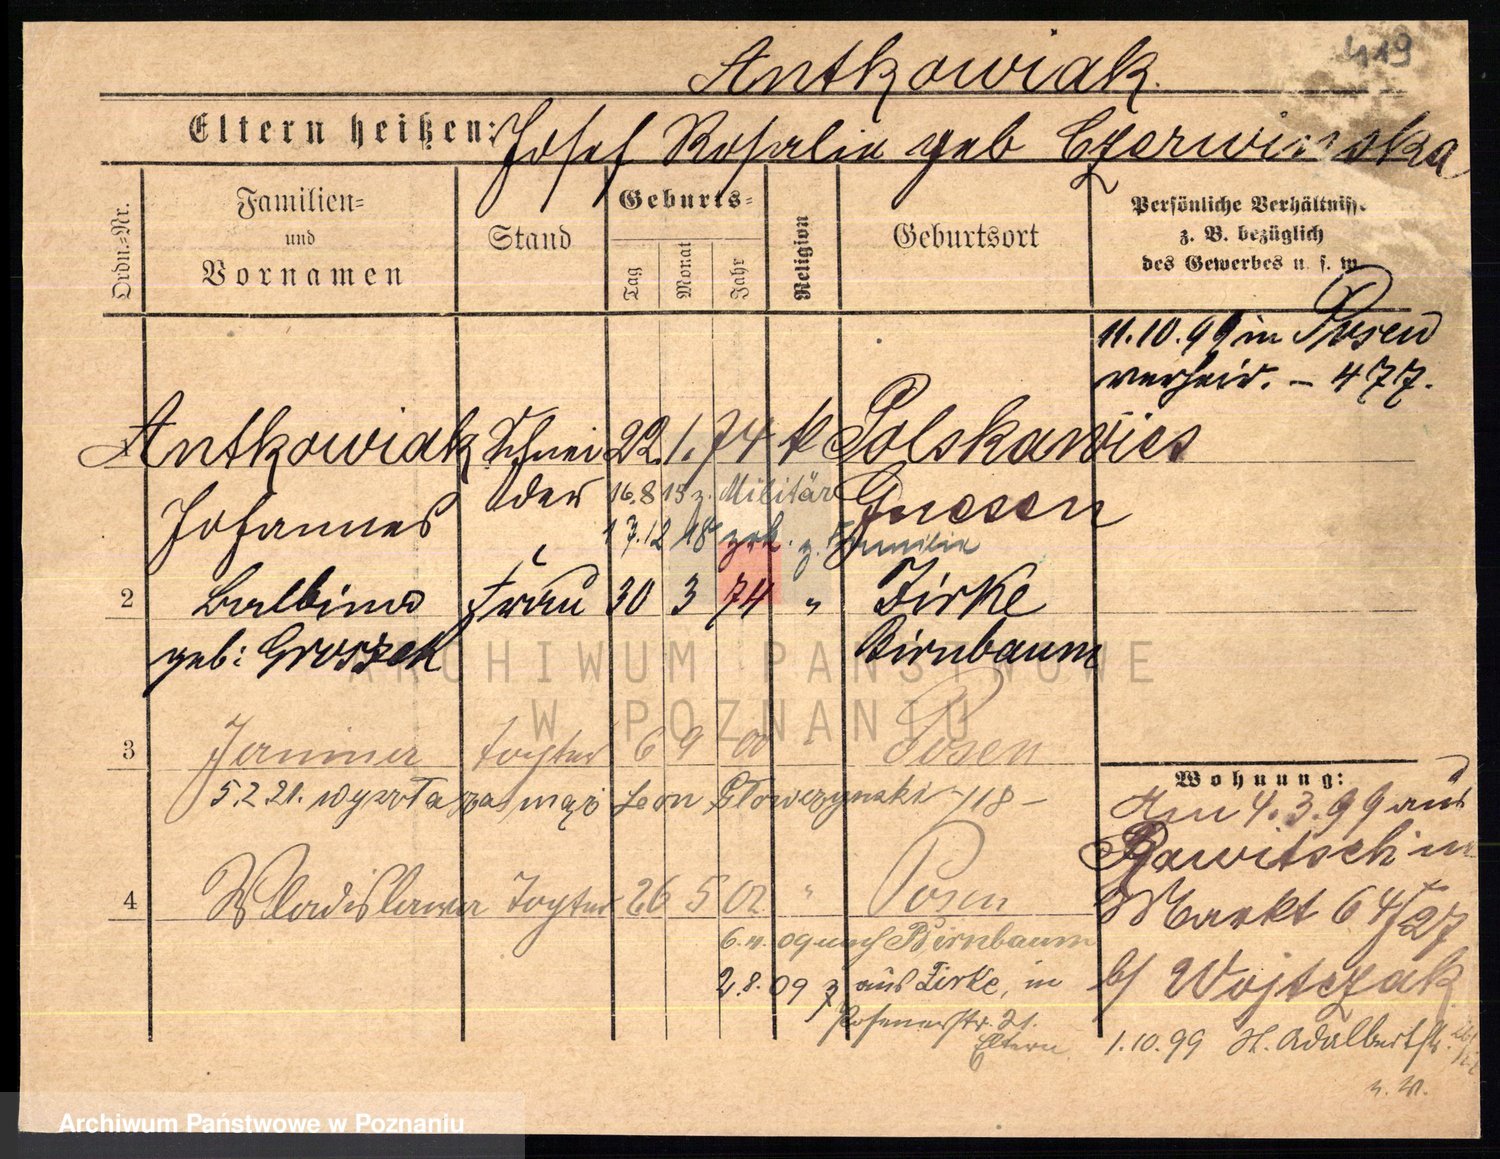 419
Antkowiak.
Eltern heißen: Josef Rosalie geb Czerwinska
Ordn.-Nr.
Familien-
und
Vornamen
Stand
Geburts-
Tag
Monat
Jahr
Religion
Geburtsort
Persönliche Verhältnisse
z. B. bezüglich
des Gewerbes u. s. w.
11.10.99 in Posen
verheir. – 477.
Antkowiak Schnei 22. 1. 74 k Polskawies
Johannes der Gnesen
16.8 15 z. Militär
17.12 18 zrk. z. Familie
2 Balbina Frau 30 3 74 " Zirke
geb: Groszek Birnbaum
3 Janina Tochter 6 9 00 " Posen
5.2.21. wyszła za mąż Leon Głowczynski 718 –
4 Wladislawa Tochter 26 5 02 " Posen
6.4.09 nach Birnbaum
2.8.09 z aus Zirke, in
Posenerstr. 21.
Eltern
Wohnung:
Am 4.3.99 aus
Rawitsch in
Markt 64/27
b/ Wojtczak
1.10.99 St. Adalbertstr.
ARCHIWUM PAŃSTWOWE
W POZNANIU
Archiwum Państwowe w Poznaniu